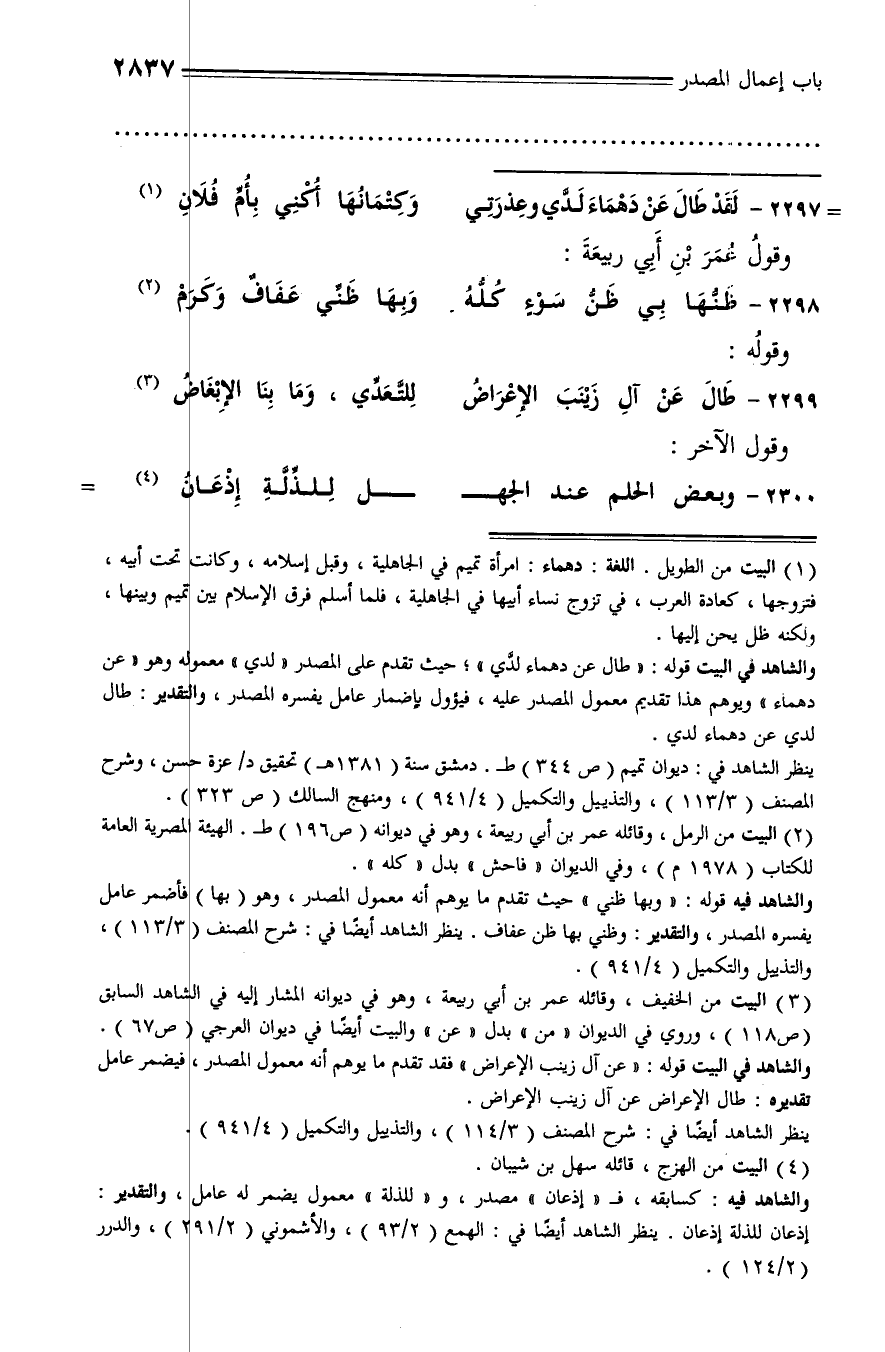 باب إعمال المصدر ٢٨٣٧
= ٢٢٩٧ - لَقَدْ طَالَ عَنْ دَهْمَاءَ لَدَّي وعِذرَتِي وَكِتْمَانُهَا أُكْنِي بِأُمِّ فُلَانِ (١)
وقولُ عُمَرَ بْنِ أَبِي ربيعَةَ :
٢٢٩٨ - ظَنُّهَا بِي ظَنُّ سَوْءٍ كُلُّهُ وَبِهَا ظَنِّي عَفَافٌ وَكَرَمْ (٢)
وقولُه :
٢٢٩٩ - طَالَ عَنْ آلِ زَيْنَبَ الإِعْرَاضُ لِلتَّعَدِّي ، وَمَا بِنَا الإِبْغَاضُ (٣)
وقول الآخر :
٢٣٠٠ - وبعض الحلم عند الجهـ ـل لِلذِّلَّةِ إِذْعَانُ (٤) =
(١) البيت من الطويل . اللغة : دهماء : امرأة تميم في الجاهلية ، وقبل إسلامه ، وكانت تحت أبيه ،
فتزوجها ، كعادة العرب ، في تزوج نساء أبيها في الجاهلية ، فلما أسلم فرق الإسلام بين تميم وبينها ،
ولكنه ظل يحن إليها .
والشاهد في البيت قوله : « طال عن دهماء لدَّي » ؛ حيث تقدم على المصدر « لدي » معموله وهو « عن
دهماء » ويوهم هذا تقديم معمول المصدر عليه ، فيؤول بإضمار عامل يفسره المصدر ، والتقدير : طال
لدي عن دهماء لدي .
ينظر الشاهد في : ديوان تميم ( ص ٣٤٤ ) طـ . دمشق سنة ( ١٣٨١هـ ) تحقيق د/ عزة حسن ، وشرح
المصنف ( ١١٣/٣ ) ، والتذييل والتكميل ( ٩٤١/٤ ) ، ومنهج السالك ( ص ٣٢٣ ) .
(٢) البيت من الرمل ، وقائله عمر بن أبي ربيعة ، وهو في ديوانه ( ص١٩٦ ) طـ . الهيئة المصرية العامة
للكتاب ( ١٩٧٨ م ) ، وفي الديوان « فاحش » بدل « كله » .
والشاهد فيه قوله : « وبها ظني » حيث تقدم ما يوهم أنه معمول المصدر ، وهو ( بها ) فأضمر عامل
يفسره المصدر ، والتقدير : وظني بها ظن عفاف . ينظر الشاهد أيضًا في : شرح المصنف ( ١١٣/٣ ) ،
والتذييل والتكميل ( ٩٤١/٤ ) .
(٣) البيت من الخفيف ، وقائله عمر بن أبي ربيعة ، وهو في ديوانه المشار إليه في الشاهد السابق
(ص١١٨ ) ، وروي في الديوان « من » بدل « عن » والبيت أيضًا في ديوان العرجي ( ص٦٧ ) .
والشاهد في البيت قوله : « عن آل زينب الإعراض » فقد تقدم ما يوهم أنه معمول المصدر ، فيضمر عامل
تقديره : طال الإعراض عن آل زينب الإعراض .
ينظر الشاهد أيضًا في : شرح المصنف ( ١١٤/٣ ) ، والتذييل والتكميل ( ٩٤١/٤ ) .
(٤) البيت من الهزج ، قائله سهل بن شيبان .
والشاهد فيه : كسابقه ، فـ « إذعان » مصدر ، و « للذلة » معمول يضمر له عامل ، والتقدير :
إذعان للذلة إذعان . ينظر الشاهد أيضًا في : الهمع ( ٩٣/٢ ) ، والأشموني ( ٢٩١/٢ ) ، والدرر
( ١٢٤/٢ ) .